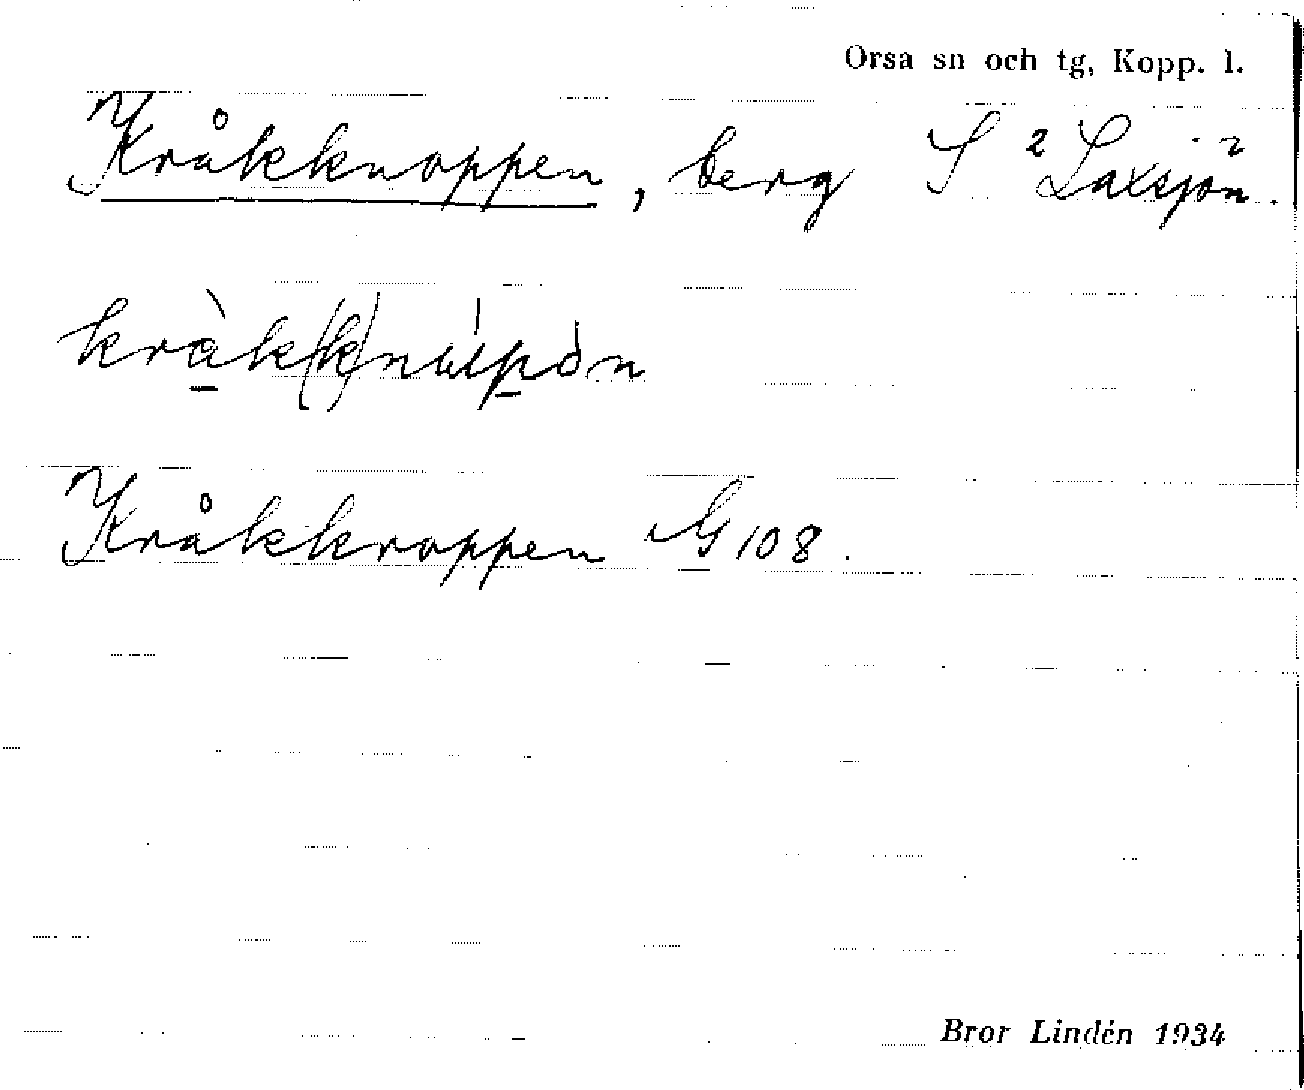 Orsa sn och tg, Kopp. l.
Kråkknoppen, berg S ² Laxsjön ².
Kråkkroppen G 108.
Bror Lindén 1934